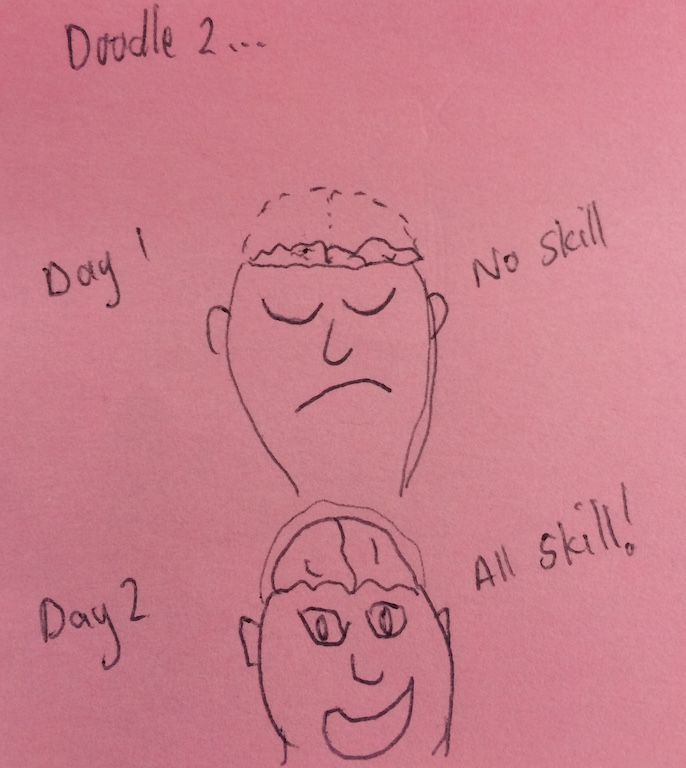 Doodle 2...
Day 1
No Skill
Day 2
All Skill!